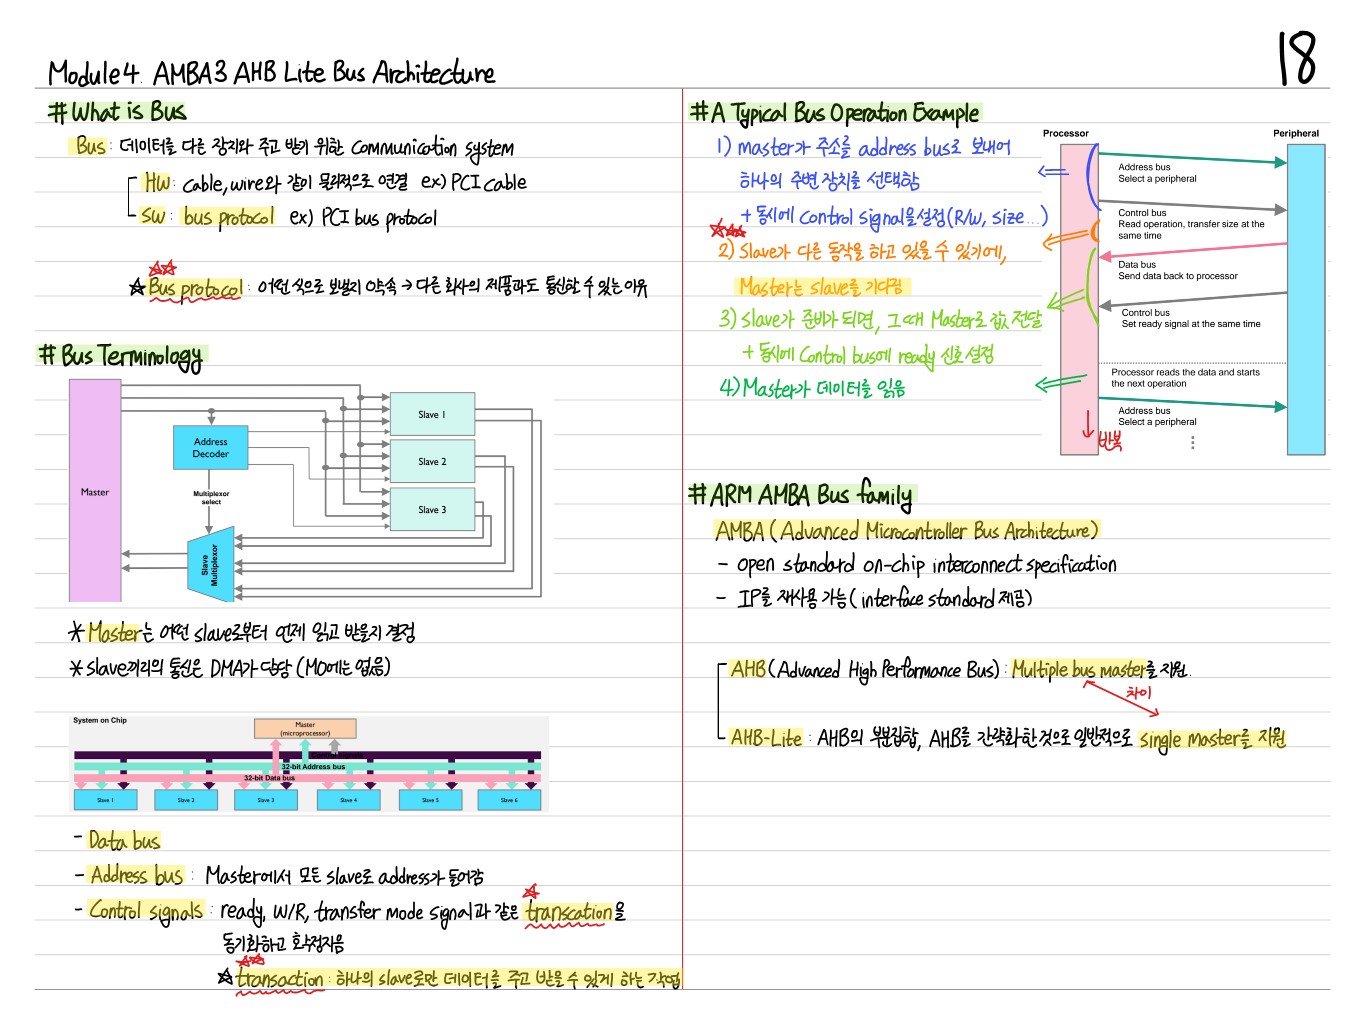 18
Module 4. AMBA3 AHB Lite Bus Architecture
# What is Bus
Bus : 데이터를 다른 장치와 주고 받기 위한 Communication system
HW : cable, wire와 같이 물리적으로 연결 ex) PCI cable
SW : bus protocol ex) PCI bus protocol
☆ Bus protocol : 어떤 식으로 보낼지 약속 → 다른 회사의 제품과도 통신할 수 있는 이유
# Bus Terminology
Master
Address
Decoder
Multiplexor
select
Slave
Multiplexor
Slave 1
Slave 2
Slave 3
* Master는 어떤 slave로부터 언제 읽고 받을지 결정
* slave끼리의 통신은 DMA가 담당 (M0에는 없음)
System on Chip
Master
(microprocessor)
32-bit Address bus
32-bit Data bus
Slave 1
Slave 2
Slave 3
Slave 4
Slave 5
Slave 6
- Data bus
- Address bus : Master에서 모든 slave로 address가 들어감
- Control signals : ready, W/R, transfer mode signal과 같은 transcation을
동기화하고 확정지음
☆ transaction : 하나의 slave로만 데이터를 주고 받을 수 있게 하는 작업
# A Typical Bus Operation Example
1) master가 주소를 address bus로 보내어
하나의 주변 장치를 선택함
+ 동시에 Control signal을 설정(R/W, size...)
2) Slave가 다른 동작을 하고 있을 수 있기에,
Master는 slave를 기다림
3) Slave가 준비가 되면, 그때 Master로 값 전달
+ 동시에 Control bus에 ready 신호 설정
4) Master가 데이터를 읽음
Processor
Peripheral
Address bus
Select a peripheral
Control bus
Read operation, transfer size at the
same time
Data bus
Send data back to processor
Control bus
Set ready signal at the same time
Processor reads the data and starts
the next operation
Address bus
Select a peripheral
반복
# ARM AMBA Bus family
AMBA (Advanced Microcontroller Bus Architecture)
- open standard on-chip interconnect specification
- IP를 재사용 가능 (interface standard 제공)
AHB (Advanced High Performance Bus) : Multiple bus master를 지원.
차이
AHB-Lite : AHB의 부분집합, AHB를 간략화한 것으로 일반적으로 single master를 지원